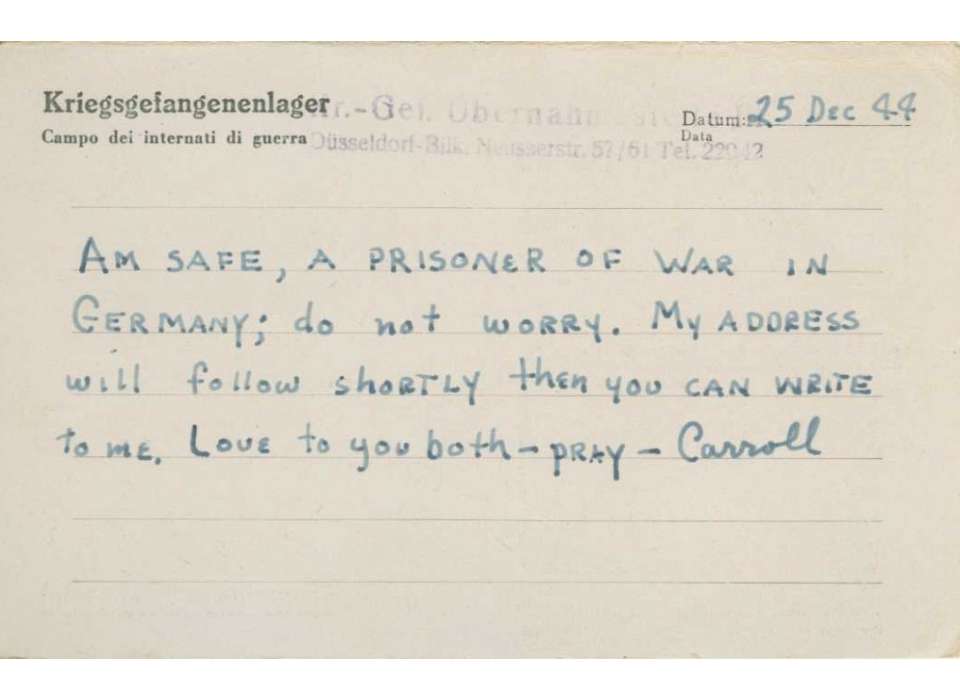 Kriegsgefangenenlager
Campo dei internati di guerra
Kr.-Gef. Übernahme
Düsseldorf-Bilk, Neusserstr. 57/61 Tel. 22942
Datum: 25 Dec 44
Data
AM SAFE, A PRISONER OF WAR IN
GERMANY; do not WORRY. My ADDRESS
will follow shORTLY then you CAN WRITE
to ME. LOVE to you both - PRAY - Carroll